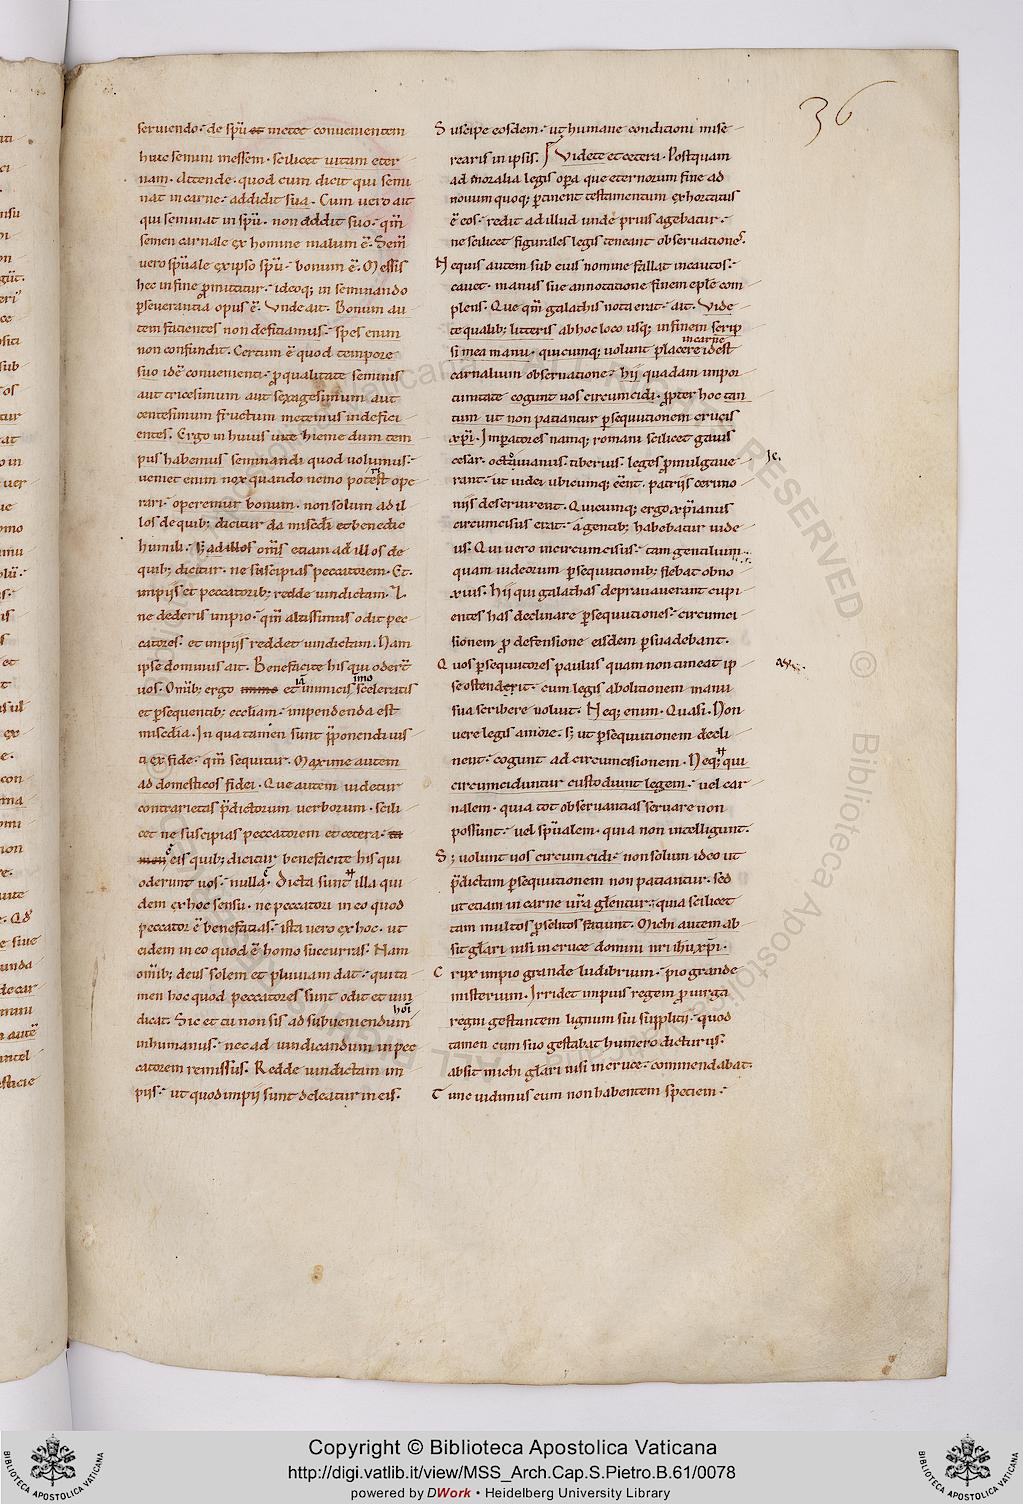 36
seruiendo. de spū et metet conuenientem
huic semini messem. scilicet uitam eter
nam. Attende. quod cum dicit qui semi
nat in carne. addidit sua. Cum uero ait
qui seminat in spū. non addit suo. qm̄
semen carnale ex homine malum ē. Sem̄
uero spūale ex ipso spū. bonum ē. Messis
hec in fine promittitur. ideoq; in seminando
perseuerantia opus ē. Vnde ait. Bonum au
tem facientes non deficiamus. spes enim
non confundit. Certum ē quod tempore
suo idē conuenienti. pro qualitate seminis
aut tricesimum aut sexagesimum aut
centesimum fructum metemus indefici
entes. Ergo in huius uite hieme dum tem
pus habemus seminandi quod uolumus.
ueniet enim nox quando nemo potest ope
rari. operemur bonum. non solum ad il
los de quib; dicitur da misedi et benedic
humili. s; ad illos oms etiam ad illos de
quib; dicitur. ne suscipias peccatorem. Et.
impiis et peccatorib; redde uindictam.
ne dederis impio. qm̄ altissimus odit pec
catores. et impiis reddet uindictam. Nam
ipse dominus ait. Benefacite his qui oderūt
uos. Omib; ergo immo et inimicis sceleratis
et persequentib; eccliam. impendenda est
misedia. In qua tamen sunt p̄ponendi uis
ti ex fide. qm̄ sequitur. Maxime autem
ad domesticos fidei. Que autem uidetur
contrarietas p̄dictorum uerborum. scili
cet ne suscipias peccatorem et cetera. ta
men eis quib; dicitur benefacite his qui
oderunt uos. nulla. Dicta sunt illa qui
dem ex hoc sensu. ne peccatori in eo quod
peccator ē benefacias. ista uero ex hoc. ut
eidem in eo quod ē homo succurras. Nam
omib; deus solem et pluuiam dat. qui ta
men hoc quod peccatores sunt odit et uin
dicat. Sic et tu non sis ad subueniendum
inhumanus. nec ad uindicandum in pec
catorem remissus. Redde uindictam im
piis. ut quod impii sunt deleatur in eis.
Suscipe eosdem. ut humane conditioni mise
rearis in ipsis. Videte et cetera. Postquam
ad moralia legis opera que eternorum fine ad
nouum quoq; pertinent testamentum exhortatus
ē eos. redit ad illud unde prius agebatur.
ne scilicet figurales legis teneant obseruationes.
Nequis autem sub eius nomine fallat incautos.
cauet. manus sue annotatione finem eple com
plens. Que qm̄ galathis nota erat. ait. Vide
te qualib; litteris ab hoc loco usq; in finem scrip
si mea manu. quicumq; uolunt placere in carne idest
carnalium obseruatione. hii quadam impor
tunitate cogunt uos circumcidi. propter hoc tan
tum ut non patiantur persequutionem crucis
xpi. Imperatores namq; romani scilicet gaius
cesar. octauianus. tiberius. leges promulgaue
rant. ut iudei ubicumq; eēnt. patriis cerimo
niis deseruirent. Quicumq; ergo xpianus
circumcisus erat. a gentib; habebatur iude
us. Qui uero incircumcisus. tam gentilium
quam iudeorum persequutionib; fiebat obno
xius. hii qui galathas deprauauerant cupi
entes has declinare persequutiones. circumci
sionem pro defensione eisdem persuadebant.
Quos persequutores paulus quam non timeat ip
se ostenderit. cum legis abolitionem manu
sua scribere uoluit. Neq; enim. Quasi. Non
uere legis amore. s; ut persequutionem decli
nent. cogunt ad circumcisionem. Neq; qui
circumciduntur custodiunt legem. uel car
nalem. quia tot obseruantias seruare non
possunt. uel spūalem. quia non intelligunt.
S; uolunt uos circumcidi. non solum ideo ut
p̄dictam persequutionem non patiantur. sed
ut etiam in carne ura glentur. quia scilicet
tam multos proselitos faciunt. Michi autem ab
sit glari nisi in cruce domini nri ihu xpi.
Crux impio grande ludibrium. pio grande
misterium. Irridet impius regem pro uirga
regni gestantem lignum sui supplicii. quod
tamen cum suo gestabat humero dicturus.
absit michi glari nisi in cruce. commendabat.
Tunc uidimus eum non habentem speciem.
Copyright © Biblioteca Apostolica Vaticana
http://digi.vatlib.it/view/MSS_Arch.Cap.S.Pietro.B.61/0078
powered by DWork • Heidelberg University Library